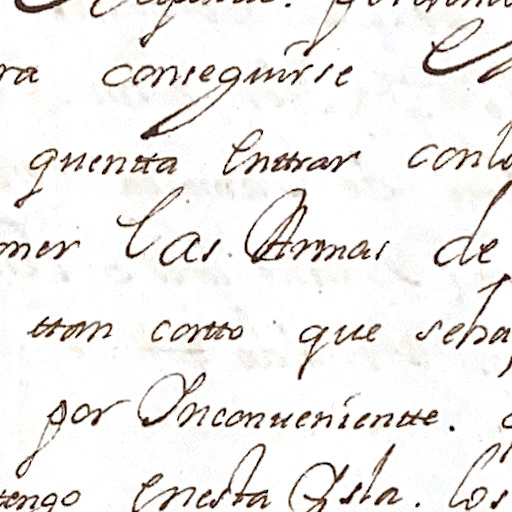 ra conseguirse
quentta enttrar conlo
oner las Armas de
ttan cortto que seha
por Inconuenientte.
tengo enesta Ysla. los